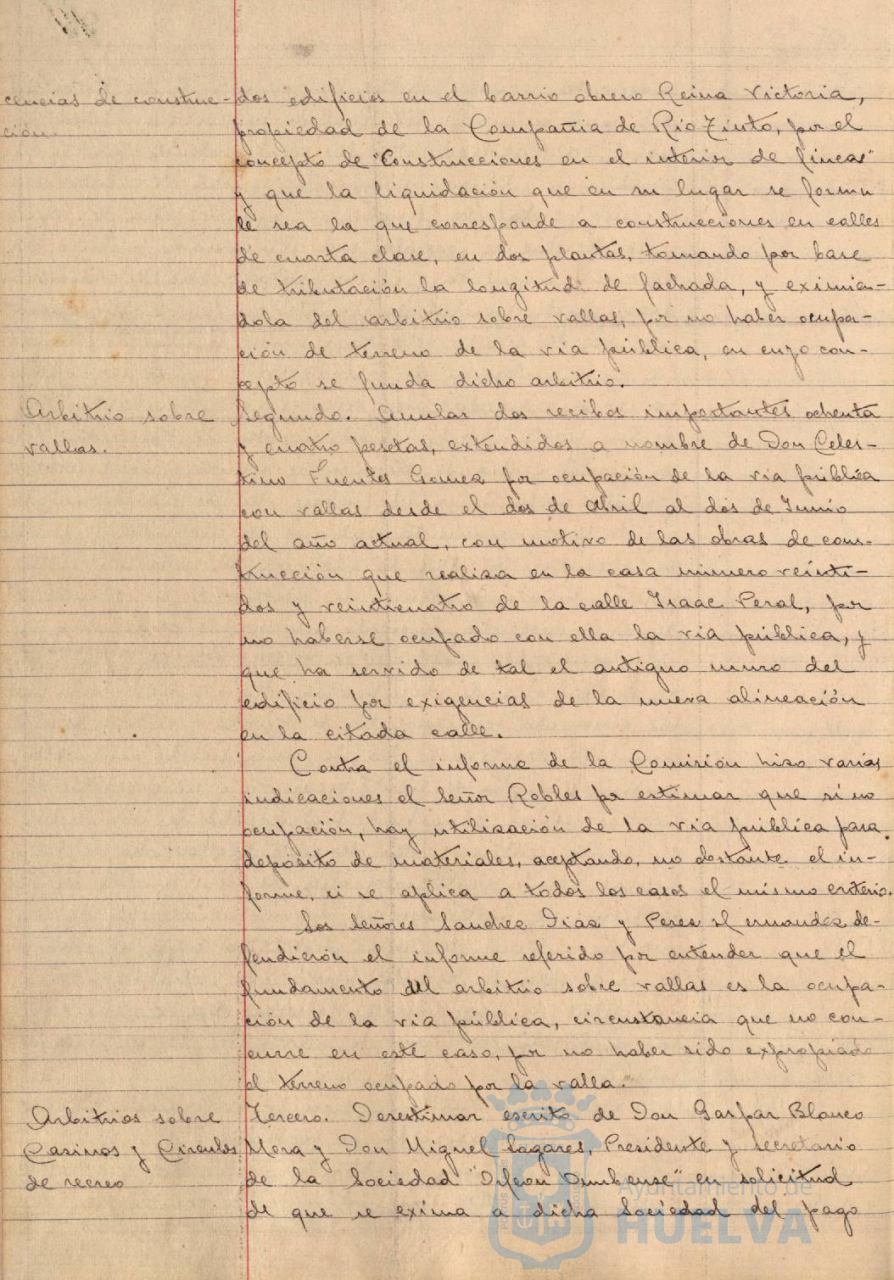 cencias de construc- dos edificios en el barrio obrero Reina Victoria,
ción. propiedad de la Compañia de RioTinto, por el
concepto de "Construcciones en el interior de fincas"
y que la liquidación que en su lugar se formu
le sea la que corresponde a construcciones en calles
de cuarta clase, en dos plantas, tomando por base
de tributación la longitud de fachada, y eximien-
dola del arbitrio sobre vallas, por no haber ocupa-
ción de terreno de la via pública, en cuyo con-
cepto se funda dicho arbitrio.
Arbitrio sobre Segundo. Anular dos recibos importantes ochenta
vallas. y cuatro pesetas, extendidos a nombre de Don Celes-
tino Fuentes Gomez por ocupación de la via pública
con vallas desde el dos de Abril al dos de Junio
del año actual, con motivo de las obras de cons-
trucción que realiza en la casa número veinti-
dos y veinticuatro de la calle Isaac Peral, por
no haberse ocupado con ella la via pública, y
que ha servido de tal el antiguo muro del
edificio por exigencias de la nueva alineación
en la citada calle.
Contra el informe de la Comisión hizo varias
indicaciones el Señor Robles por estimar que si no
ocupación, hay utilización de la via pública para
depósito de materiales, aceptando, no obstante el in-
forme, si se aplica a todos los casos el mismo criterio.
Los Señores Sanchez Diaz y Perez Hernandez de-
fendierón el informe referido por entender que el
fundamento del arbitrio sobre vallas es la ocupa-
ción de la via pública, circustancia que no con-
curre en este caso, por no haber sido expropiado
el terreno ocupado por la valla.
Arbitrios sobre Tercero. Desestimar escrito de Don Gaspar Blanco
Casinos y Circulos Mora y Don Miguel Lagares, Presidente y secretario
de recreo de la Sociedad "Orfeon Onubense" en solicitud
de que se exima a dicha Sociedad del pago
Ayuntamiento de
HUELVA